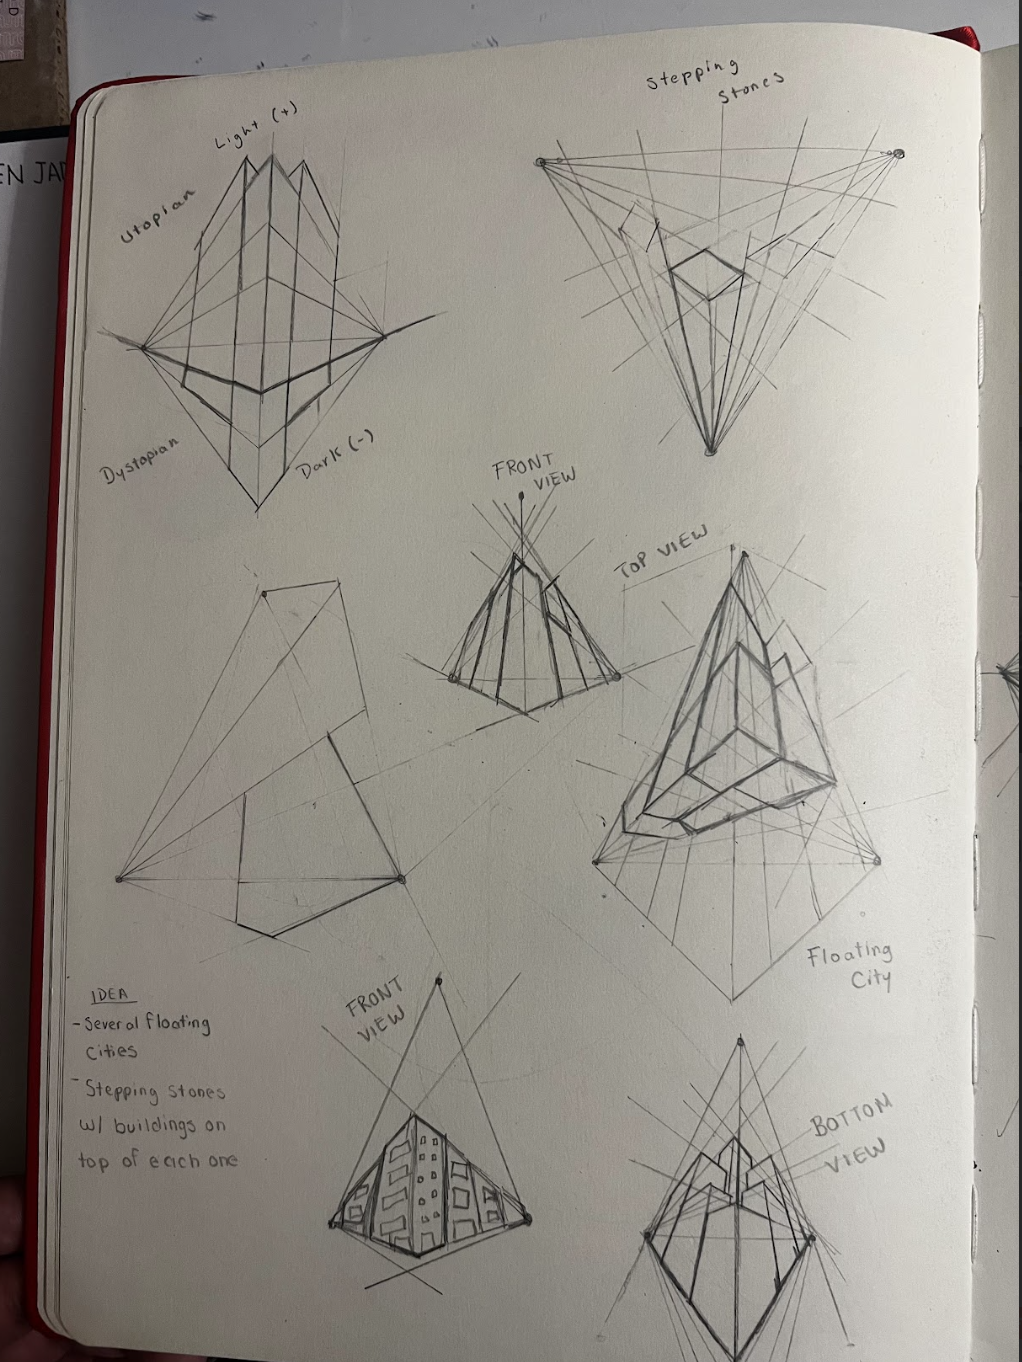 EN JAD
Light (+)
Utopian
Dystopian
Dark (-)
Stepping
Stones
FRONT
VIEW
TOP VIEW
Floating
City
IDEA
- Several floating
cities
- Stepping stones
w/ buildings on
top of each one
FRONT
VIEW
BOTTOM
VIEW